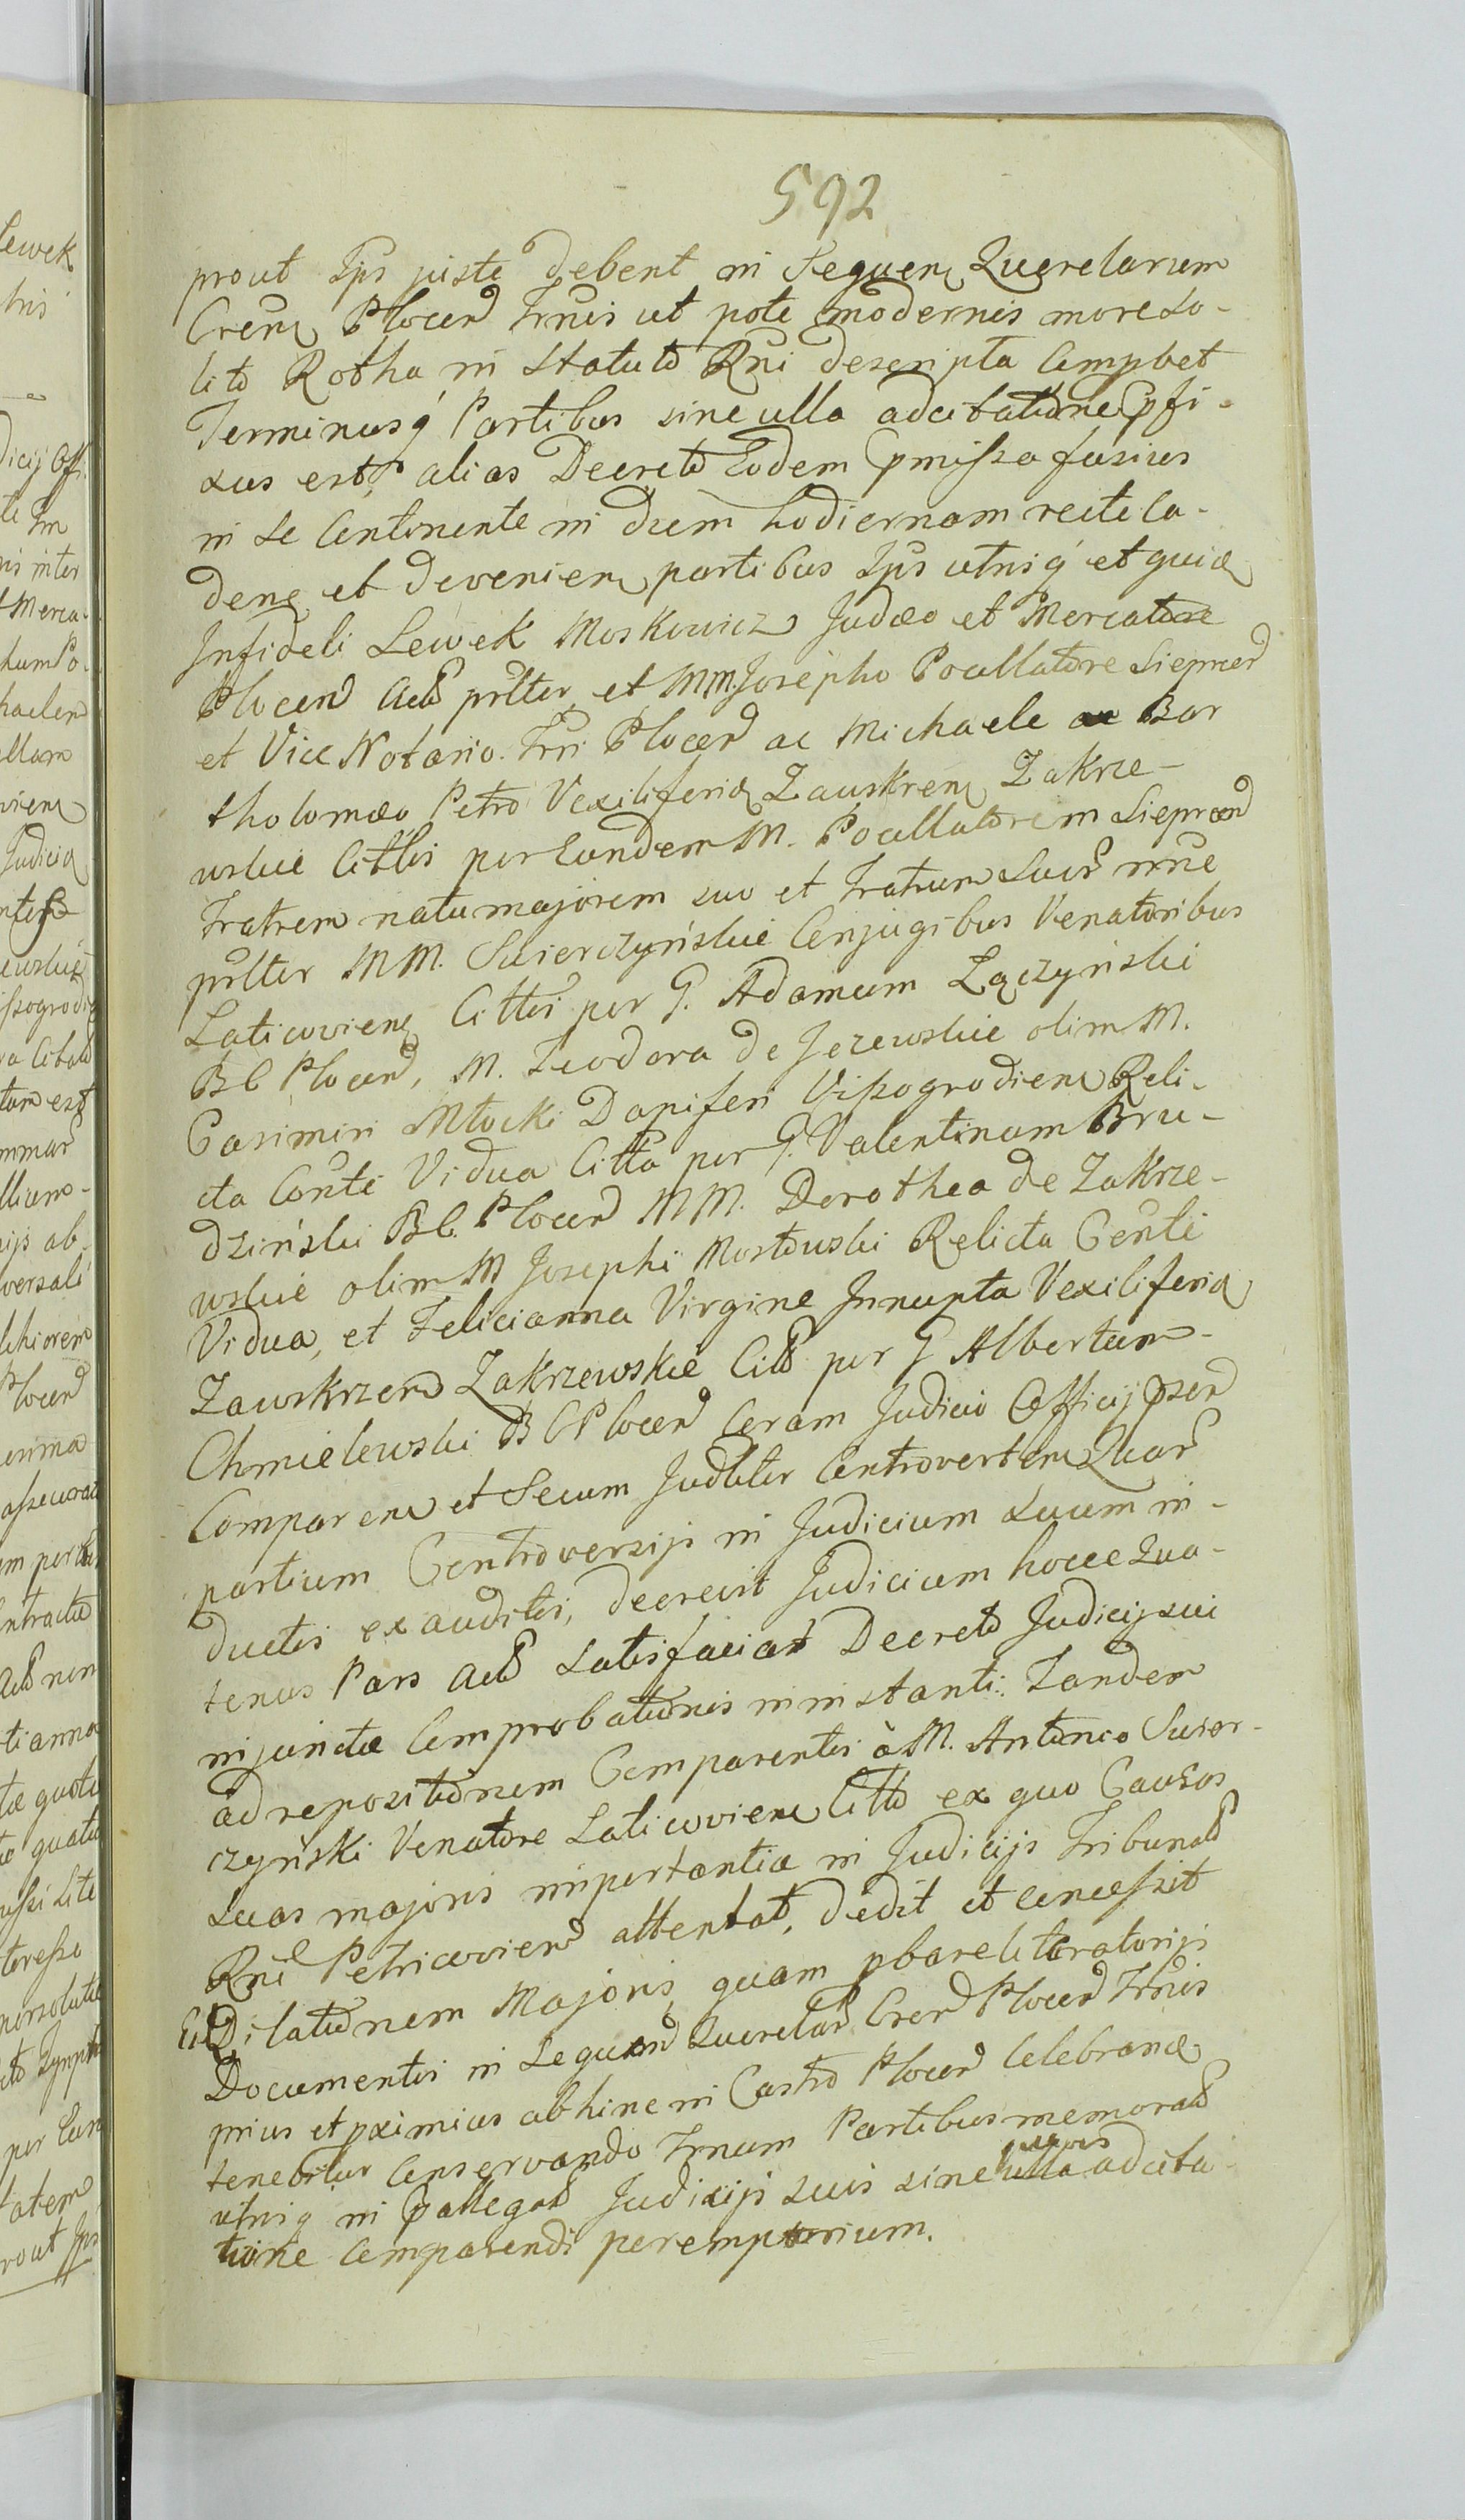 592
prout Ips juste debent in Sequen Querelarum
Cren Plocen Trnis ut pote modernis more so-
lito Rotha in Statuto Rni descripta Compbet
Terminusq Partibus sine ulla adcitatione Pfi-
xus est, alias Decreto Eodem Pmissa fusius
in se Continente in diem hodiernam recte Ca-
den et devenien partibus Ips utrisq et quid
Infideli Lewek Moskowicz Judæo et Mercatore
Plocen Act prlter et MM. Josepho Pocillatore Sieprcen
et Vice Notario Trri Plocen ac Michaele ac Bar
tholomæo Petro Vexiliferid Zawskren Zakrze-
wskie Cittis per Eundem M. Pocillatorem Sieprcen
Fratrem natu majorem suo et Fratrum Suor nne
prlter MM. Swierczyńskie Conjugibus Venatoribus
Laticovien Cittis per G. Adamum Łączyński
Bb Plocen, M. Teodora de Jezewskie olim M.
Casimiri Młocki Dapiferi Vissogrodien Reli-
cta Conti Vidua Citta per G. Valentinum Bru-
dziński Bb. Plocen MM. Dorothea de Zakrze-
wskie olim M Josephi Mostowski Relicta Conti
Vidua, et Felicianna Virgine Innupta Vexiliferid
Zawskrzen Zakrzewskie Citt per G Albertum
Chmielewski Bb Plocen Coram Judicio Officij Psen
Comparen et Secum Judlter Controverten Quar
partium Controversijs in Judicium suum in-
ductis exauditis, decrevit Judicium hocce Qua-
tenus Pars Act satisfaciat Decreto Judicij sui
injunctæ Comprobationis in instanti. Tandem
ad repositionem Comparentis à M. Antonio Swier-
czyński Venatore Laticovien Citto ex quo Causas
suas majoris importantiæ in Judicijs Tribunal
Rni Petricovien attentat, dedit et concessit
Ei Dilationem Majoris quam pbare literatorijs
Documentis in Sequen Querelar Cren Plocen Trnis
prius et pximius abhinc in Castro Plocen Celebrand
tenebitur Conservando Trnum Partibus memorat
utrisq in Pallegat Judicijs suis sine ulla adcita-
tione Comparendi peremptorium.